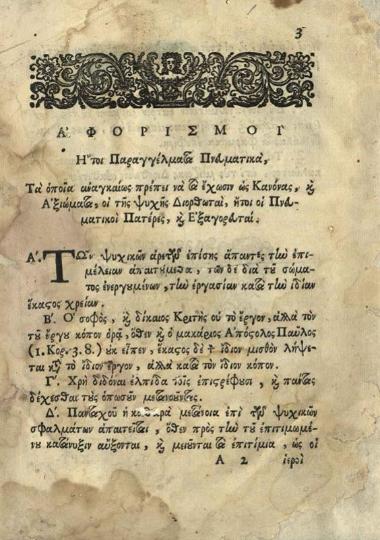 3
Α'ΦΟΡΙΣΜΟΙ
Η῎τοι Παραγγέλματα Πνευματικὰ,
Τὰ ὁποῖα ἀναγκαίως πρέπει νὰ τὰ ἔχωσιν ὡς Κανόνας, καὶ
Α'ξιώματα, οἱ τῆς ψυχῆς Διορθωταὶ, ἤτοι οἱ Πνευ-
ματικοὶ Πατέρες, καὶ Ε'ξαγορευταί.
Α'. ΤΩν ψυχικῶν ἀρετῶν ἐπίσης ἅπαντες τὴν ἐπι-
μέλειαν ἀπαιτούμεθα, τῶν δὲ διὰ τοῦ σώμα-
τος ἐνεργουμένων, τὴν ἐργασίαν κατὰ τὴν ἰδίαν
ἕκαστος χρείαν.
Β'. Ο' σοφὸς, καὶ δίκαιος Κριτὴς οὐ τὸ ἔργον, ἀλλὰ τὸν
τοῦ ἔργου κόπον ὁρᾷ, ὅθεν καὶ ὁ μακάριος Α'πόστολος Παῦλος
(1. Κορ. 3. 8.) οὐκ εἶπεν, ἕκαστος δὲ τὸν ἴδιον μισθὸν λήψε-
ται κατὰ τὸ ἴδιον ἔργον, ἀλλὰ κατὰ τὸν ἴδιον κόπον.
Γ'. Χρὴ διδόναι ἐλπίδα τοῖς ἐπιστρέφουσι, καὶ πάντας
δέχεσθαι τοὺς ὁπωσοῦν μετανοοῦντας.
Δ'. Πανταχοῦ ἡ καθαρὰ μετάνοια ἐπὶ τῶν ψυχικῶν
σφαλμάτων ἀπαιτεῖται, ὅθεν πρὸς τὴν τοῦ ἐπιτιμωμέ-
νου κατάνυξιν αὔξονται, καὶ μειοῦνται τὰ ἐπιτίμια, ὡς οἱ
Α 2 ἱεροὶ